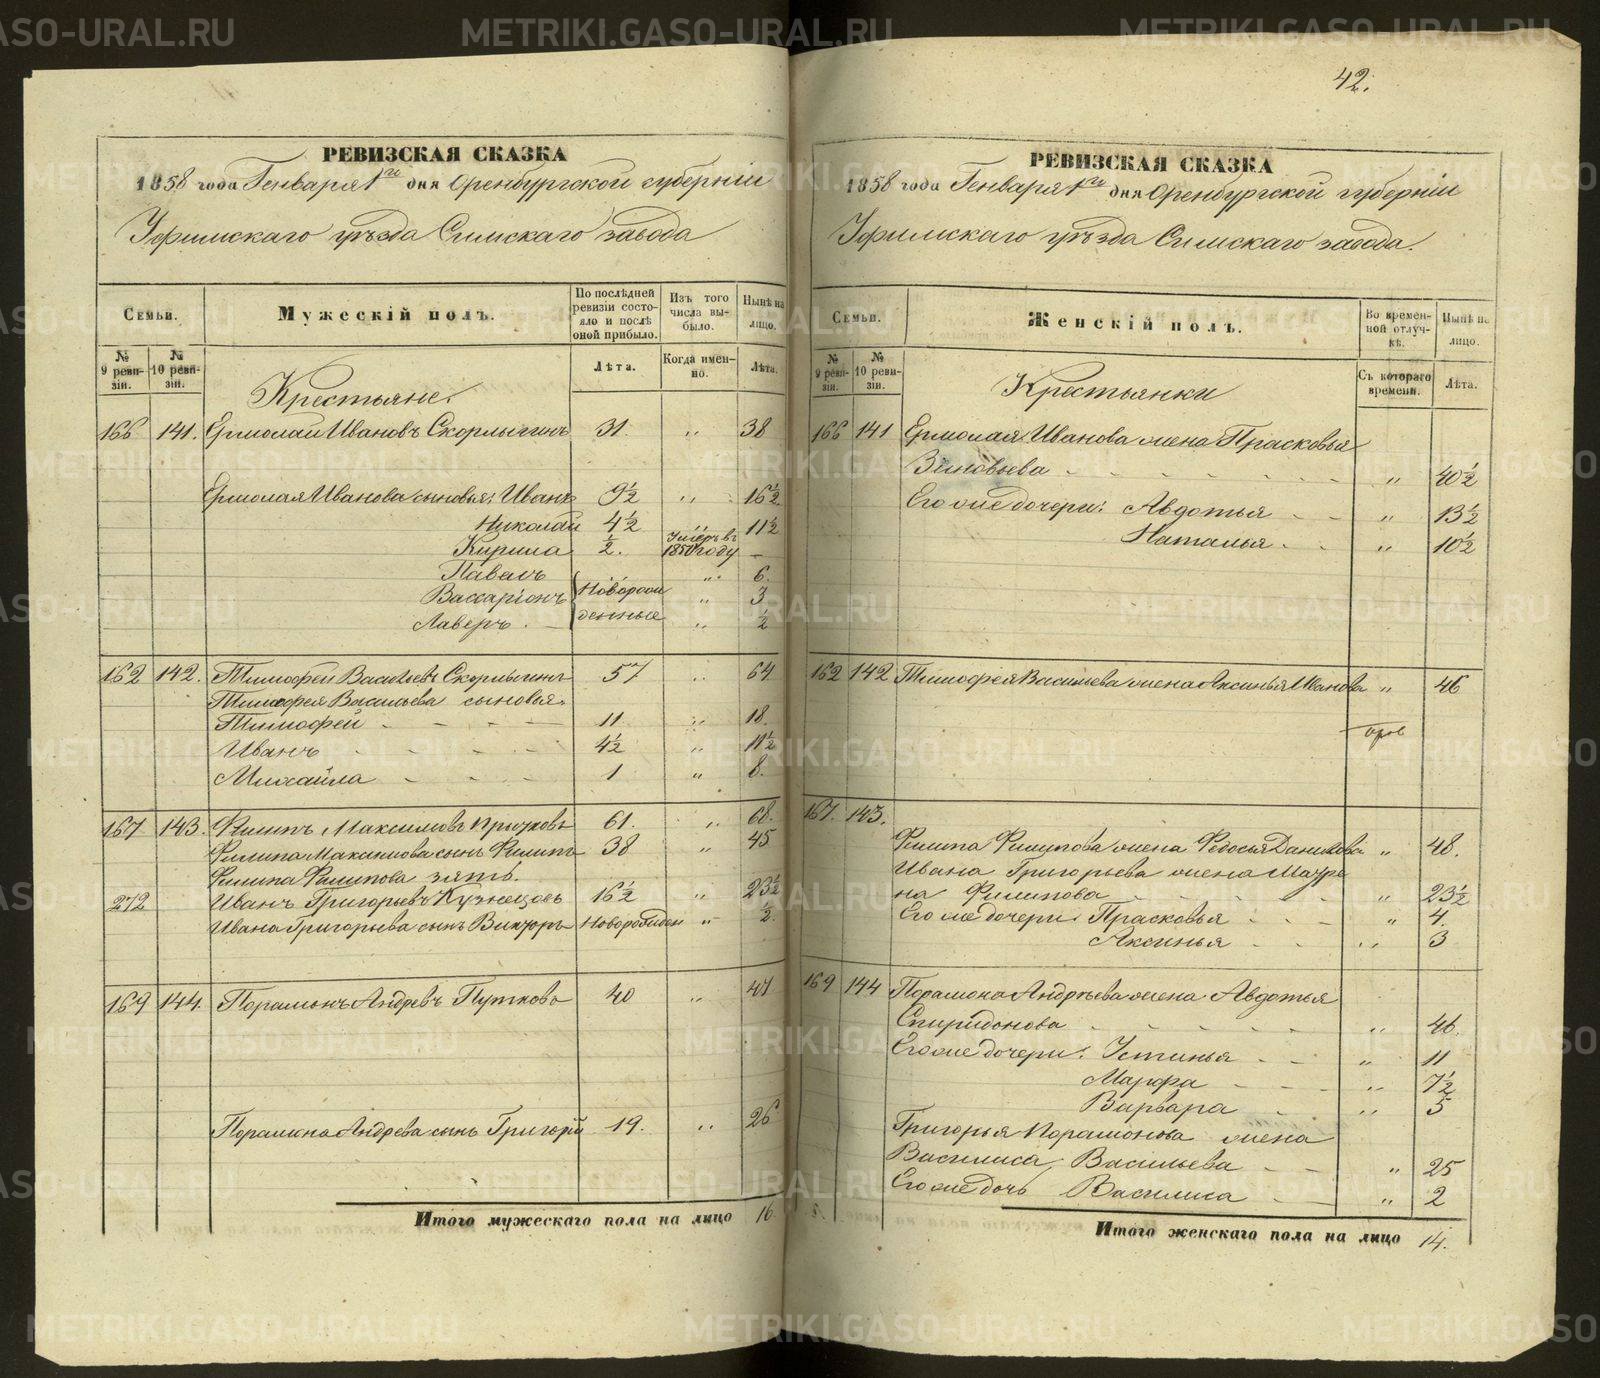 42.
РЕВИЗСКАЯ СКАЗКА
1858 года Генваря 1го дня Оренбургской губерніи
Уфимскаго уѣзда Симскаго завода
Семьи.
Мужескій полъ.
По послѣдней ревизіи состояло и послѣ оной прибыло.
Изъ того числа выбыло.
Нынѣ на лицо.
№ 9 ревизіи.
№ 10 ревизіи.
Лѣта.
Когда именно.
Лѣта.
Крестьяне.
166 141. Ермолай Ивановъ Скорлыгинъ 31. „ 38
Ермолая Иванова сыновья: Иванъ 9½ „ 16½
Николай 4½ „ 11½
Кирила ½. Умеръ въ 1850 году —
Павелъ „ 6.
Вассаріонъ Новорожденные „ 3
Лаверъ. „ ½
162 142. Тимофей Васильевъ Скорлыгинъ 57 „ 64
Тимофея Васильева сыновья:
Тимофей 11 „ 18.
Иванъ 4½ „ 11½
Михайла 1 „ 8.
167 143. Филипъ Максимовъ Крючковъ 61. „ 68.
Филипа Максимова сынъ Филипъ 38 „ 45
Филипа Филипова зять.
272 Иванъ Григорьевъ Кузнецовъ 16½ „ 23½
Ивана Григорьева сынъ Викторъ Новорожден „ ½.
169 144. Парамонъ Андреевъ Путковъ 40 „ 47
Парамона Андрева сынъ Григорій 19. „ 26
Итого мужескаго пола на лицо 16
РЕВИЗСКАЯ СКАЗКА
1858 года Генваря 1го дня Оренбургской губерніи
Уфимскаго уѣзда Симскаго завода.
Семьи.
Женскій полъ.
Во временной отлучкѣ.
Нынѣ на лицо.
№ 9 ревизіи.
№ 10 ревизіи.
Съ котораго времени.
Лѣта.
Крестьянки
166 141 Ермолая Иванова жена Прасковья
Зиновьева „ 40½
Его же дочери: Авдотья „ 13½
Наталья „ 10½
162 142 Тимофея Васильева жена Аксинья Иванова „ 46
167. 143.
Филипа Филипова жена Федосья Данилова „ 48.
Ивана Григорьева жена Матре
на Филипова „ 23½
Его же дочери: Прасковья „ 4.
Аксинья „ 3
169 144 Парамона Андрѣева жена Авдотья
Спиридонова „ 46.
Его же дочери: Устинья „ 11
Марфа „ 7½
Варвара „ 5
Григорья Парамонова жена
Василиса Васильева „ 25
Его же дочь Василиса „ 2
Итого женскаго пола на лицо 14.
METRIKI.GASO-URAL.RU